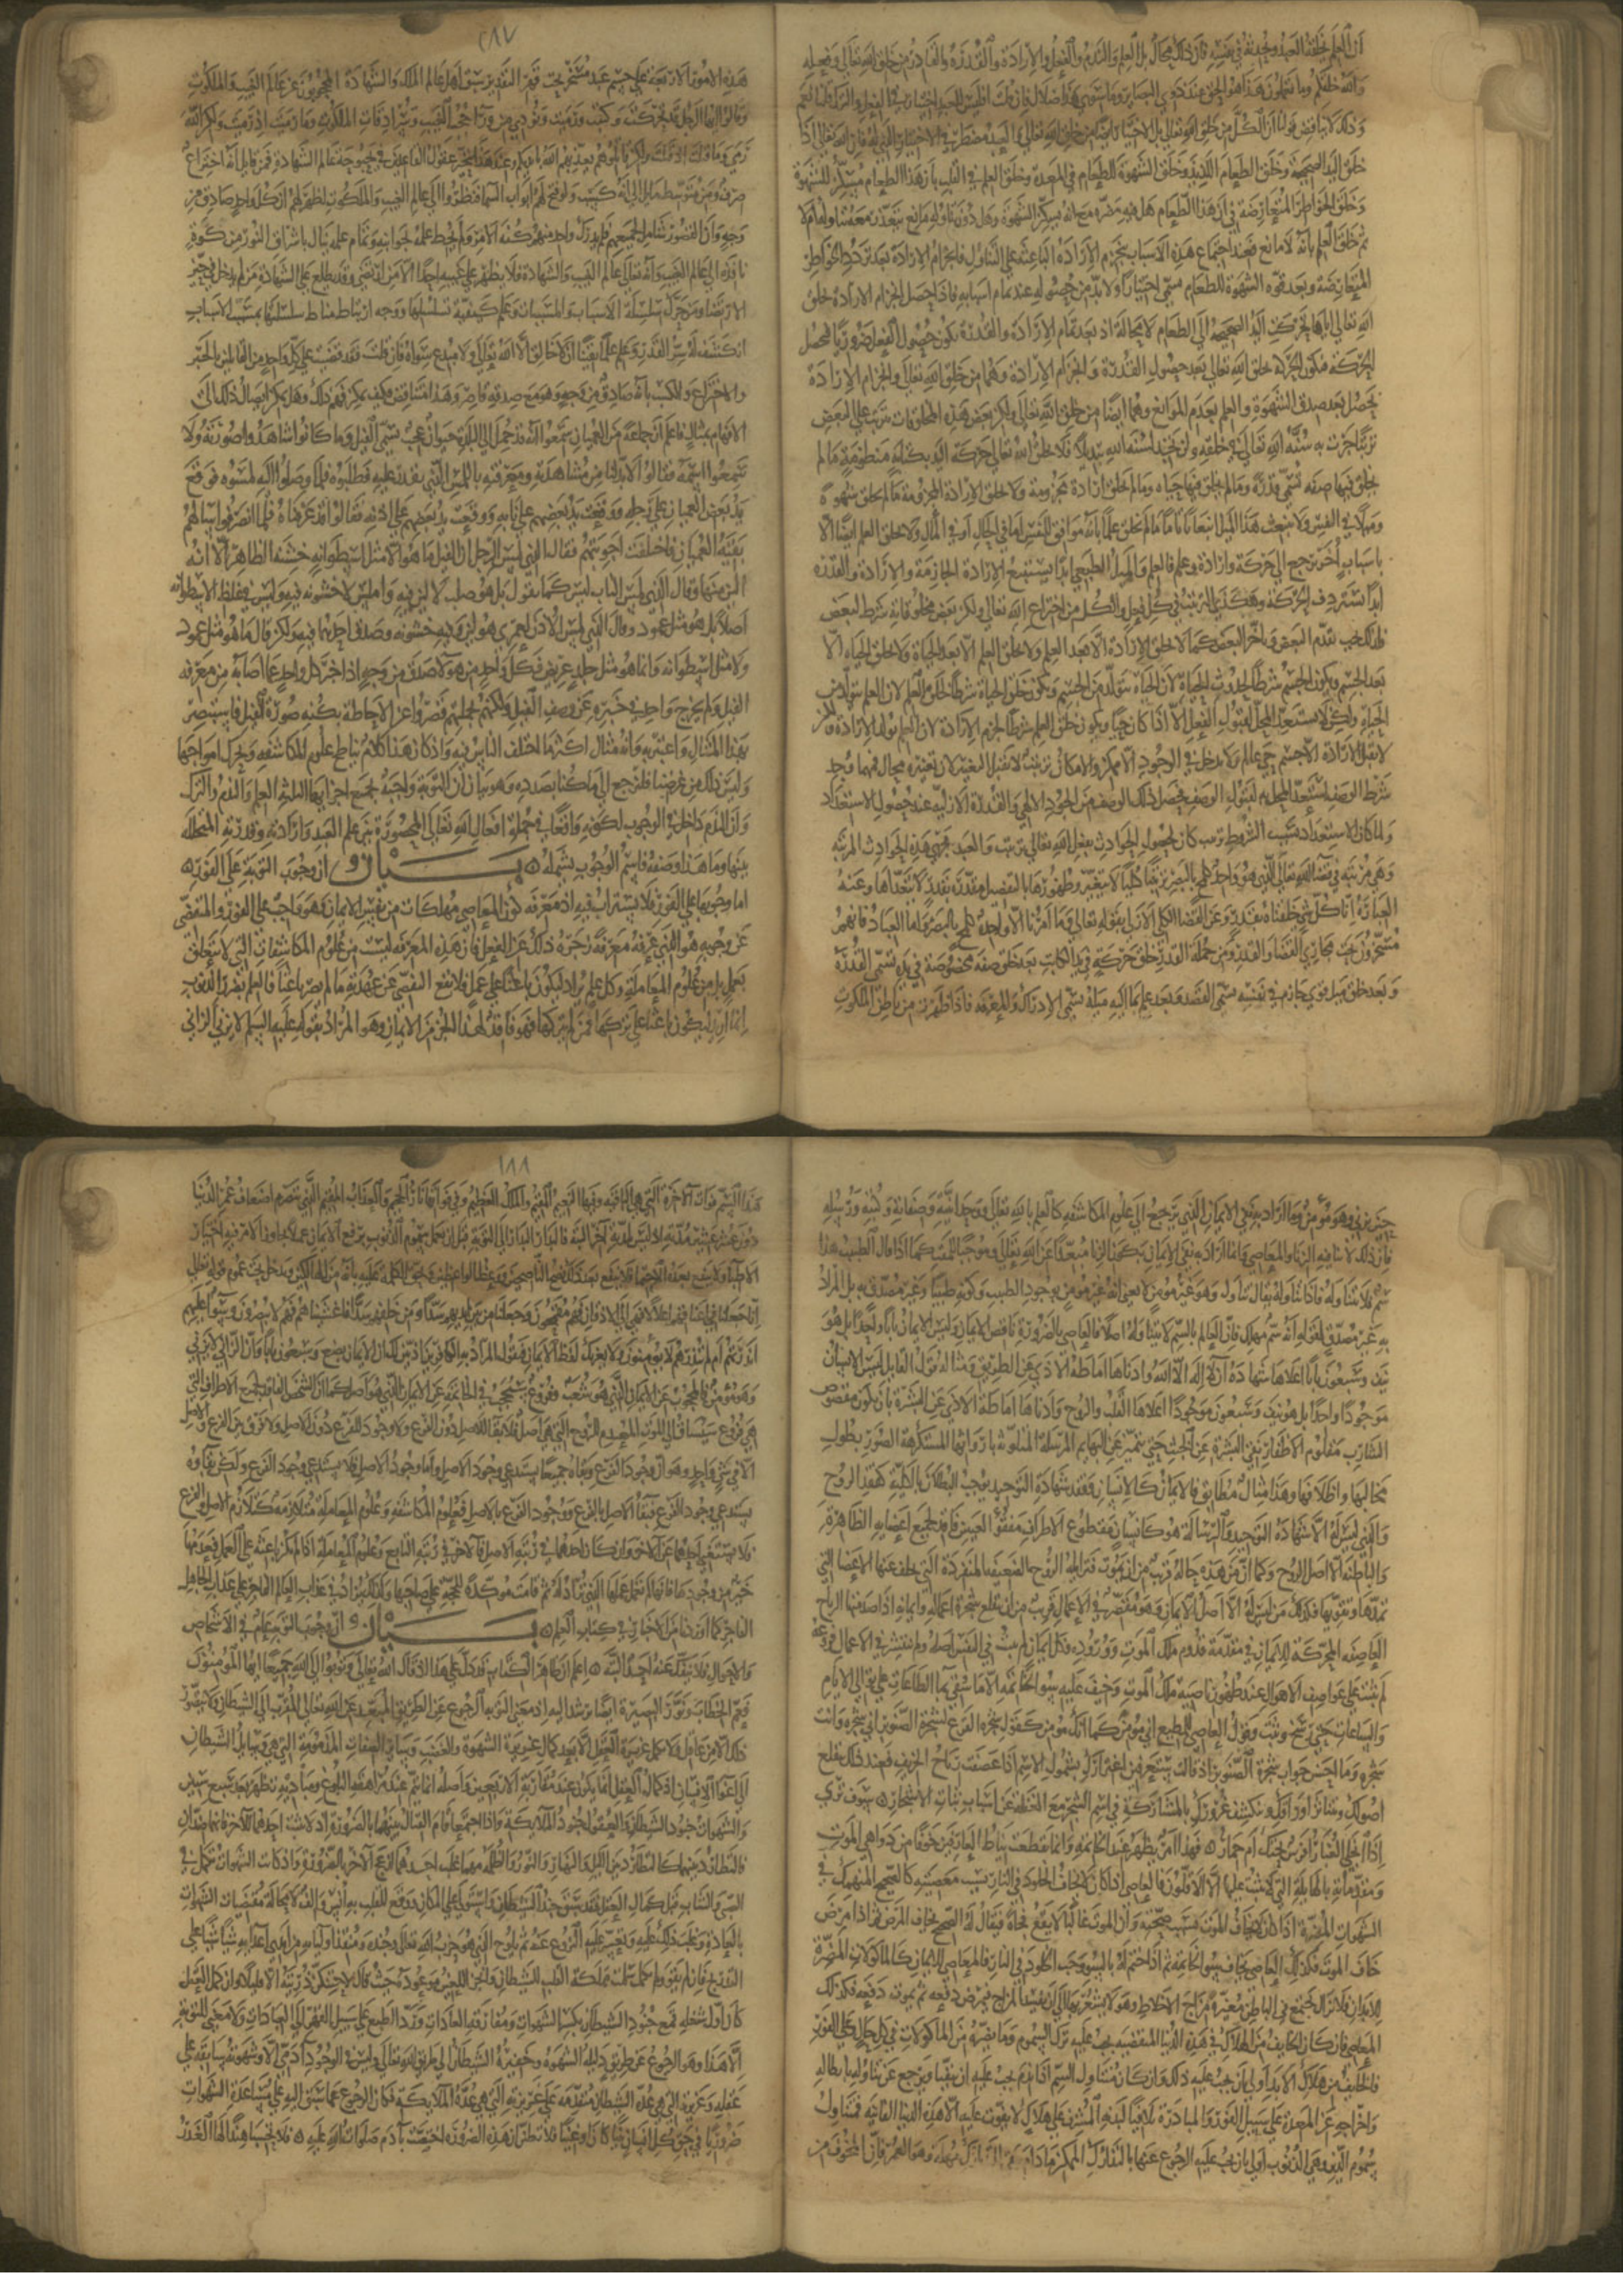 ان العلم يخلقه العبد ويحدثه في نفسه فان ذلك محال بل العلم والندم والفعل والارادة والقدرة والقادر من خلق الله تعالى وفعله
والله خلقكم وما تعملون هذا هو الحق عند ذوي البصاير وما سوى هذا ضلال فان قلت افليس للعبد اختيار في الفعل والترك قلنا نعم
وذلك لا يناقض قولنا ان الكل من خلق الله تعالى بل الاختيار ايضا من خلق الله تعالى والعبد مضطر في الاختيار الذي له فان الله تعالى اذا
خلق اليد الصحيحة وخلق الطعام اللذيذ وخلق الشهوة للطعام في المعدة وخلق العلم في القلب بان هذا الطعام مسكن للشهوة
وخلق الخواطر المتعارضة في ان هذا الطعام هل فيه مضرة مع انه يسكن الشهوة وهل دون تناوله مانع يتعذر معه تناوله ام لا
ثم خلق العلم بانه لا مانع فعند اجتماع هذه الاسباب تنجزم الارادة الباعثة على التناول فانجزام الارادة بعد تردد الخواطر
المتعارضة وبعد قوة الشهوة للطعام يسمى اختيارا ولا بد من حصوله عند تمام اسبابه فاذا حصل انجزام الارادة بخلق
الله تعالى اياها تحركت اليد الصحيحة الى الطعام لا محالة اذ بعد تمام الارادة والقدرة يكون حصول الفعل ضروريا فتحصل
الحركة فتكون الحركة بخلق الله تعالى بعد حصول القدرة وانجزام الارادة وهما من خلق الله تعالى وانجزام الارادة
يحصل بعد صدق الشهوة والعلم بعدم الموانع وهما ايضا من خلق الله تعالى ولكن بعض هذه المخلوقات يترتب على البعض
ترتيبا جرت به سنة الله تعالى في خلقه ولن تجد لسنة الله تبديلا فلا يخلق الله تعالى حركة اليد بكتابة منظومة ما لم
يخلق فيها صفة تسمى قدرة وما لم يخلق فيها حياة وما لم يخلق ارادة مجزومة ولا يخلق الارادة المجزومة ما لم يخلق شهوة
وميلا في النفس ولا ينبعث هذا الميل انبعاثا تاما ما لم يخلق علما بانه موافق للنفس اما في الحال او في المآل ولا يخلق العلم ايضا الا
باسباب اخر ترجع الى حركة وارادة وعلم فالعلم والميل الطبيعي ابدا يستتبع الارادة الجازمة والارادة والقدرة
ابدا تستردف الحركة وهكذا الترتيب في كل فعل والكل من اختراع الله تعالى ولكن بعض مخلوقاته شرط لبعض
فلذلك يجب تقدم البعض وتأخر البعض كما لا تخلق الارادة الا بعد العلم ولا يخلق العلم الا بعد الحياة ولا تخلق الحياة الا
بعد الجسم فيكون الجسم شرطا لحدوث الحياة لا ان الحياة تتولد من الجسم ويكون خلق الحياة شرطا لخلق العلم لا ان العلم يتولد من
الحياة ولكن لا يستعد المحل لقبول الفعل الا اذا كان حيا ويكون خلق العلم شرطا لجزم الارادة لا ان العلم يولد الارادة ولكن
لا يقبل الارادة الا جسم حي عالم ولا يدخل في الوجود الا ممكن وللامكان ترتيب لا يقبل التغيير لان تغييره محال فمهما وجد
شرط الوصف استعد المحل به لقبول الوصف فحصل ذلك الوصف من الجود الالهي والقدرة الازلية عند حصول الاستعداد
ولما كان للاستعداد بسبب الشروط ترتيب كان لحصول الحوادث بفعل الله تعالى ترتيب والعبد مجرى هذه الحوادث المرتبة
وهي مرتبة في قضاء الله تعالى الذي هو واحد كلمح بالبصر ترتيبا كليا لا يتغير وظهورها بالتفصيل مقدر بقدر لا تتعداها وعنه
العبارة بقوله تعالى انا كل شي خلقناه بقدر وعن القضاء الكلي الازلي بقوله تعالى وما امرنا الا واحدة كلمح بالبصر واما العباد فانهم
مسخرون تحت مجاري القضاء والقدر ومن جملة القدر خلق حركة في يد الكاتب بعد خلق صفة مخصوصة في يده تسمى القدرة
وبعد خلق ميل قوي جازم في نفسه يسمى القصد وبعد علم بما اليه ميله يسمى الادراك والمعرفة فاذا ظهرت من باطن الملكوت
٢٨٧
هذه الامور الاربعة على جسم عبد مسخر تحت قهر التقدير سبق اهل عالم الملك والشهادة المحجوبون عن عالم الغيب والملكوت
وقالوا يا ايها الرجل قد تحركت وكتبت ورميت ونودي من وراء حجب الغيب وسرادقات الملكوت وما رميت اذ رميت ولكن الله
رمى وما قتلت اذ قتلت ولكن قاتلوهم يعذبهم الله بايديكم وعند هذا تتحير عقول القاعدين في بحبوحة عالم الشهادة فمن قايل انه اختراع
صرف ومن متوسط مايل الى انه كسب ولو فتح لهم ابواب السماء فنظروا الى عالم الغيب والملكوت لظهر لهم ان كل واحد صادق من
وجه وان القصور شامل لجميعهم فلم يدرك واحد منهم كنه الامر ولم يحط علمه بجوانبه وتمام علمه ينال باشراق النور من كوة
نافذة الى عالم الغيب وانه تعالى عالم الغيب والشهادة فلا يظهر على غيبه احدا الا من ارتضى وقد يطلع على الشهادة من لم يدخل في حيز
الارتضاء ومن حرك سلسلة الاسباب والمسببات وعلم كيفية تسلسلها ووجه ارتباط مناط سلسلتها بمسبب الاسباب
انكشف له سر القدر وعلم علما يقينا ان لا خالق الا الله تعالى ولا مبدع سواه فان قلت فقد قضيت على كل واحد من القايلين بالجبر
والاختراع والكسب بانه صادق من وجه وهو مع صدقه قاصر وهذا متناقض فكيف يمكن فهم ذلك وهل يمكن ايصال ذلك الى
الافهام بمثال فاعلم ان جماعة من العميان سمعوا انه قد حمل الى البلدة حيوان عجيب يسمى الفيل وما كانوا شاهدوا صورته ولا
سمعوا اسمه فقالوا لا بد لنا من مشاهدته ومعرفته باللمس الذي نقدر عليه فطلبوه فلما وصلوا اليه لمسوه فوقع
يد بعض العميان على رجله ووقعت يد بعضهم على نابه ووقعت يد بعضهم على اذنه فقالوا قد عرفناه فلما انصرفوا سألهم
بقية العميان فاختلفت اجوبتهم فقال الذي لمس الرجل ان الفيل ما هو الا مثل اسطوانة خشنة الظاهر الا انه
الين منها وقال الذي لمس الناب ليس كما يقول بل هو صلب لا لين فيه واملس لا خشونة فيه وليس في غلظ الاسطوانة
اصلا بل هو مثل عمود وقال الذي لمس الاذن لعمري هو لين وفيه خشونة وصدق احدهما فيه ولكن قال ما هو مثل عمود
ولا مثل اسطوانة وانما هو مثل جلد عريض فكل واحد من هولاء صدق من وجه اذ اخبر كل واحد عما اصابه من معرفة
الفيل ولم يخرج واحد في خبره عن وصف الفيل ولكنهم بجملتهم قصروا عن الاحاطة بكنه صورة الفيل فاستبصر
بهذا المثال واعتبر به فانه مثال اكثر ما اختلف الناس فيه واذ كان هذا كلاما يناطح علوم المكاشفة ويحرك امواجها
وليس ذلك من غرضنا فلنرجع الى ما كنا بصدده وهو بيان ان التوبة واجبة بجميع اجزايها الثلثة العلم والندم والترك
وان الندم داخل في الوجوب لكونه واقعا في جملة افعال الله تعالى المحصورة بين علم العبد وارادته وقدرته المتخللة
بينها وما هذا وصفه فاسم الوجوب يشمله بيان ان وجوب التوبة على الفور
اما وجوبها على الفور فلا يستراب فيه اذ معرفة كون المعاصي مهلكات من نفس الايمان وهو واجب على الفور والمتفصي
عن وجوبه هو الذي عرفه معرفة زجره ذلك عن الفعل فان هذه المعرفة ليست من علوم المكاشفات التي لا تتعلق
بعمل بل من علوم المعاملة وكل علم يراد ليكون باعثا على عمل فلا يقع التفصي عن عهدته ما لم يصر باعثا فالعلم بضرر الذنوب
انما اريد ليكون باعثا على تركها فمن لم يتركها فهو فاقد لهذا الجزء من الايمان وهو المراد بقوله عليه السلم لا يزني الزاني
حين يزني وهو مؤمن وما اراد به نفي الايمان الذي يرجع الى علوم المكاشفة كالعلم بالله تعالى ووحدانيته وصفاته وكتبه ورسله
فان ذلك لا ينافيه الزنا والمعاصي وانما اراد به نفي الايمان بكون الزنا مبعدا عن الله تعالى وموجبا للمقت كما اذا قال الطبيب هذا
سم فلا تتناوله فاذا تناوله يقال تناول وهو غير مومن لا بمعنى انه غير مومن بوجود الطبيب وكونه طبيبا وغير مصدق به بل المراد
به غير مصدق بقوله انه سم مهلك فان العالم بالسم لا يتناوله اصلا فالعاصي بالضرورة ناقص الايمان وليس الايمان بابا واحدا بل هو
نيف وسبعون بابا اعلاها شهادة ان لا اله الا الله وادناها اماطة الاذى عن الطريق ومثاله قول القايل ليس الانسان
موجودا واحدا بل هو نيف وسبعون موجودا اعلاها القلب والروح وادناها اماطة الاذى عن البشرة بان يكون مقصوص
الشارب مقلوم الاظفار نقي البشرة عن الخبث حتى يتميز عن البهايم المرسلة المتلوثة بارواثها المستكرهة الصور بطول
مخالبها واظلافها وهذا مثال مطابق فالايمان كالانسان وفقد شهادة التوحيد يوجب البطلان بالكلية كفقد الروح
والذي ليس له الا شهادة التوحيد والرسالة هو كانسان مقطوع الاطراف مفقوء العينين فاقد لجميع اعضايه الظاهرة
والباطنة الا اصل الروح وكما ان من هذه حاله قريب من ان يموت فتزايله الروح الضعيفة المنفردة التي تخلف عنها الاعضا التي
تمدها وتقويها فكذلك من ليس له الا اصل الايمان وهو مقصر في الاعمال قريب من ان تنقلع شجرة اعماله وايمانه اذا صدمتها الرياح
العاصفة المحركة للايمان في مقدمة قدوم ملك الموت ووروده فكل ايمان لم يثبت في النفس اصله ولم تنتشر في الاعمال فروعه
لم يثبت على عواصف الاهوال عند ظهور ناصية ملك الموت وخيف عليه سوء الخاتمة الا ما سقي بماء الطاعات على توالي الايام
والساعات حتى رسخ وثبت وقول العاصي للمطيع اني مومن كما انك مومن كقول شجرة القرع لشجرة الصنوبر اني شجرة وانت
شجرة وما احسن جواب شجرة الصنوبر اذ قالت ستعرفين اغترارك بشمول الاسم اذا عصفت رياح الخريف فعند ذلك تنقلع
اصولك وتتناثر اوراقك وينكشف غرورك بالمشاركة في اسم الشجر مع الغفلة عن اسباب ثبات الاشجار سوف ترى
اذا انجلى الغبار افرس تحتك ام حمار فهذا امر يظهر عند الخاتمة وانما تقطعت نياط العارفين خوفا من دواهي الموت
ومقدماته الهايلة التي لا يثبت عليها الا الاقلون فالعاصي اذا كان لا يخاف الخلود في النار بسبب معصيته كالصحيح المنهمك في
الشهوات المضرة اذا كان لا يخاف الموت بسبب صحته وان الموت غالبا لا يقع فجأة فيقال له الصحيح يخاف المرض ثم اذا مرض
خاف الموت فكذلك العاصي يخاف سوء الخاتمة ثم اذا ختم له بالسوء وجب الخلود في النار فالمعاصي للايمان كالماكولات المضرة
للابدان فلا تزال تجتمع في الباطن مغيرة مزاج الاخلاط وهو لا يشعر بها الى ان يفسد المزاج فيمرض دفعة ثم يموت دفعة فكذلك
المعاصي فان كان الخايف من الهلاك في هذه الدنيا المنقضية يجب عليه ترك السموم وما يضره من الماكولات في كل حال على الفور
فالخايف من هلاك الابد اولى بان يجب عليه ذلك وان كان متناول السم اذا ندم يجب عليه ان يتقيأ ويرجع عن تناوله بابطاله
واخراجه عن المعدة على سبيل الفور والمبادرة تلافيا لبدنه المشرف على هلاك لا يفوت عليه الا هذه الدنيا الفانية فمتناول
سموم الدين وهي الذنوب اولى بان يجب عليه الرجوع عنها بالتدارك الممكن ما دام مهلة وهو العمر فان المخوف من
١٨٨
هذا السم فوات الآخرة التي هي الباقية وفيها النعيم المقيم والملك العظيم وفي فواتها نار الجحيم والعذاب المقيم الذي تتصرم اضعاف عمر الدنيا
دون عشر عشير مدته اذ ليس لمدته آخر البتة فالبدار البدار الى التوبة قبل ان تعمل سموم الذنوب بروح الايمان عملا يجاوز الامر فيه اختيار
الاطباء ولا ينفع بعده الاحتما فلا ينفع بعد ذلك نصح الناصحين ووعظ الواعظين وتحق الكلمة عليه بانه من الهالكين ويدخل تحت عموم قوله تعالى
انا جعلنا في اعناقهم اغلالا فهي الى الاذقان فهم مقمحون وجعلنا من بين ايديهم سدا ومن خلفهم سدا فاغشيناهم فهم لا يبصرون وسواء عليهم
اانذرتهم ام لم تنذرهم لا يومنون ولا يغرنك لفظ الايمان فنقول المراد به الكافر بان اذ بين لك ان الايمان بضع وسبعون بابا وان الزاني لا يزني
وهو مؤمن فالمحجوب عن الايمان الذي هو شعب وفروع سيحجب في الخاتمة عن الايمان الذي هو اصل كما ان الشخص الفاقد لجميع الاطراف التي
هي فروع سيساق الى الموت المعدم للروح التي هي اصل فلا بقا للاصل دون الفرع ولا وجود للفرع دون الاصل ولا فرق بين الفرع والاصل
الا في شي واحد وهو ان وجود الفرع وبقاءه جميعا يستدعي وجود الاصل واما وجود الاصل فلا يستدعي وجود الفرع ولكن بقاؤه
يستدعي وجود الفرع فبقاء الاصل بالفرع ووجود الفرع بالاصل فعلوم المكاشفة وعلوم المعاملة متلازمة كتلازم الاصل والفرع
فلا يستغني احدهما عن الآخر وان كان احدهما في رتبة الاصل والآخر في رتبة التابع وعلوم المعاملة اذا لم تكن باعثة على العمل فعدمها
خير من وجودها فانها لم تعمل عملها الذي تراد له ثم قامت موكدة للحجة على صاحبها ولذلك يزاد في عذاب العالم الفاجر على عذاب الجاهل
الفاجر كما اوردنا من الاخبار في كتاب العلم بيان ان وجوب التوبة عام في الاشخاص
والاحوال فلا ينفك عنه احد البتة اعلم ان ظاهر الكتاب قد دل على هذا اذ قال الله تعالى وتوبوا الى الله جميعا ايها المؤمنون
فعمم الخطاب ونور البصيرة ايضا يرشد اليه اذ معنى التوبة الرجوع عن الطريق المبعد عن الله تعالى المقرب الى الشيطان ولا يتصور
ذلك الا من عاقل ولا تكمل غريزة العقل الا بعد كمال غريزة الشهوة والغضب وساير الصفات المذمومة التي هي وسايل الشيطان
الى اغواء الانسان اذ كمال العقل انما يكون عند مقاربة الاربعين واصله انما يتم عند مراهقة البلوغ ومباديه تظهر بعد سبع سنين
والشهوات جنود الشيطان والعقول جنود الملايكة فاذا اجتمعا قام القتال بينهما بالضرورة اذ لا يثبت احدهما للآخر فانهما ضدان
فالتطارد بينهما كالتطارد بين الليل والنهار والنور والظلمة مهما غلب احدهما ازعج الآخر بالضرورة واذا كانت الشهوات تكمل في
الصبي والشاب قبل كمال العقل فقد سبق جند الشيطان واستولى على المكان ووقع للقلب به انس والف لا محالة مقتضيات الشهوات
بالعادة وغلب ذلك عليه وتعسر عليه النزوع عنه ثم يلوح الذي هو حزب الله تعالى وجنده ومنقذ اوليايه من ايدي اعدايه شيا شيا على
التدريج فان لم يقو ولم يكمل سلمت مملكة القلب للشيطان وانجز اللعين موعوده حيث قال لاحتنكن ذريته الا قليلا وان كمل العقل
كان اول شغله قمع جنود الشيطان بكسر الشهوات ومفارقة العادات ورد الطبع على سبيل القهر الى العبادات ولا معنى للتوبة
الا هذا وهو الرجوع عن طريق دليله الشهوة وخفيره الشيطان الى طريق الله تعالى وليس في الوجود آدمي الا وشهوته سابقة على
عقله وغريزته التي هي عدة الشيطان متقدمة على غريزته التي هي عدة الملايكة فكان الرجوع عما سبق اليه على مساعدة الشهوات
ضروريا في حق كل انسان نبيا كان او غبيا فلا تظنن ان هذه الضرورة اختصت بآدم صلوات الله عليه فلا تحسبن هندا لها الغدر